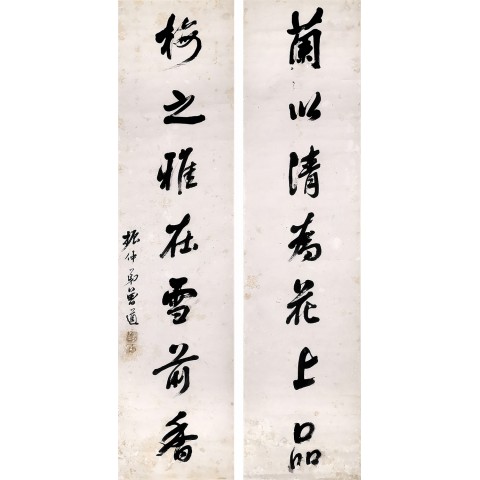 蘭以清為花上品
梅之雅在雪前香
振仲弟曾道